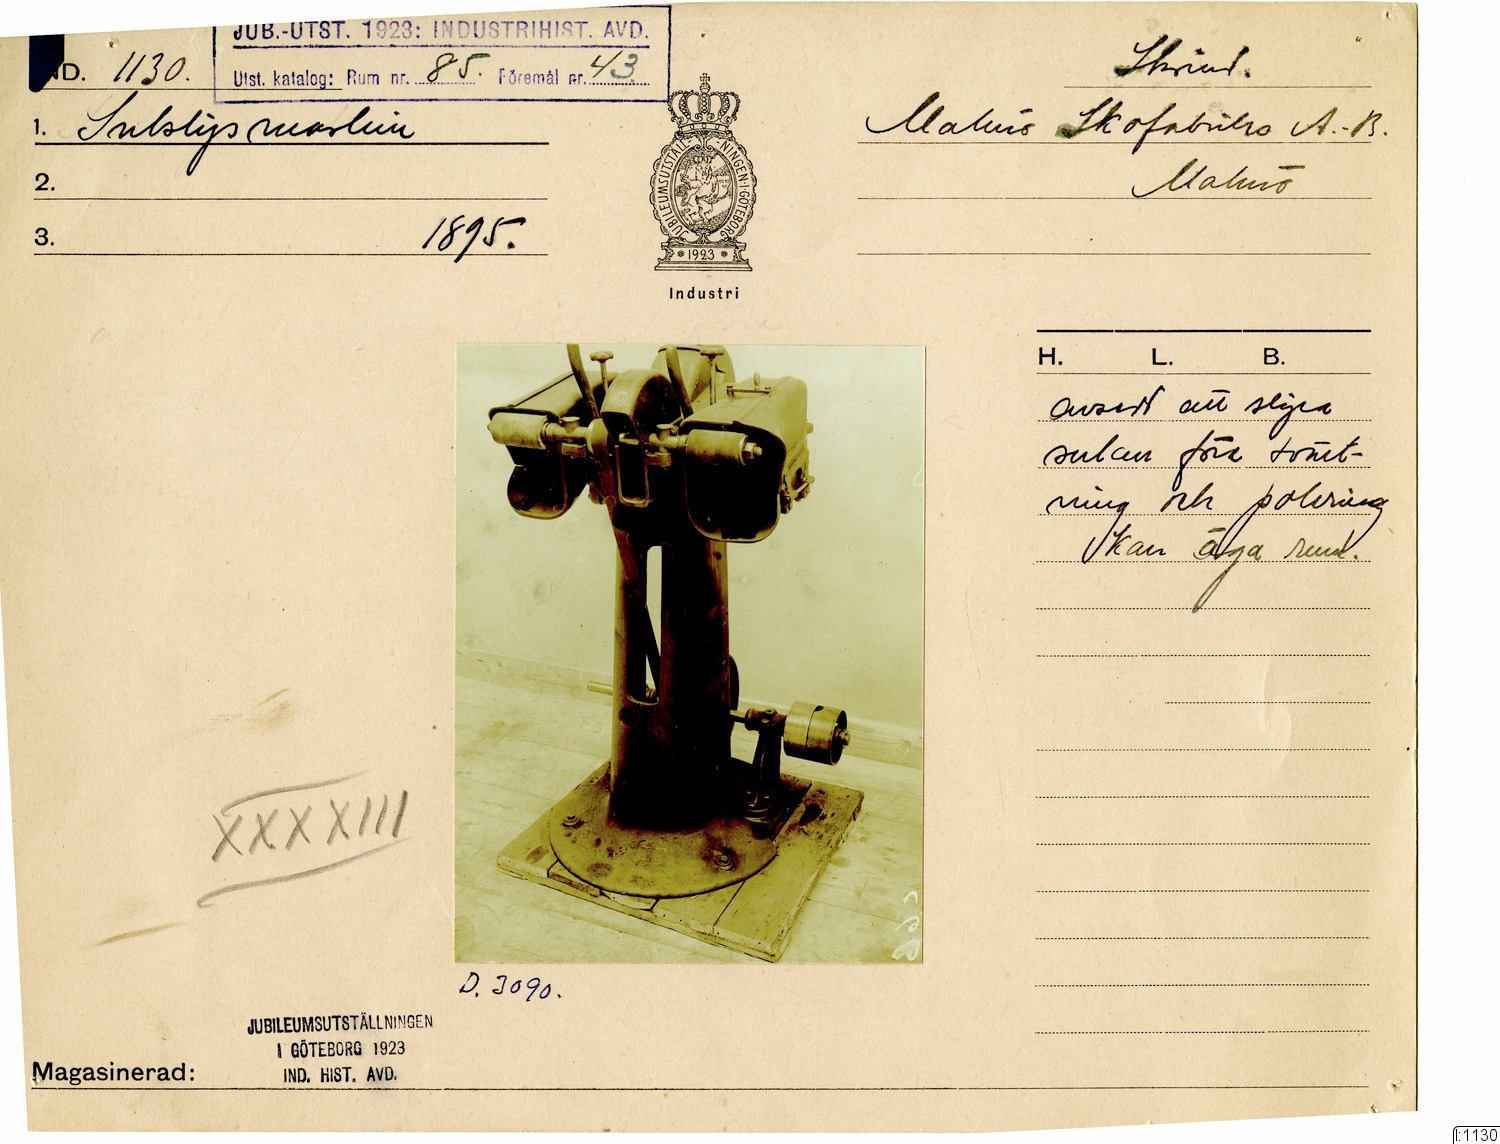 JUB.-UTST. 1923: INDUSTRIHIST. AVD.
Utst. katalog: Rum nr. 85. Föremål nr. 43
ND. 1130.
1. Sulslipsmaskin
2.
3. 1895.
JUBILEUMSUTSTÄLLNINGEN·I·GÖTEBORG
1923
Industri
Skoind.
Malmö Skofabriks A.-B.
Malmö
H. L. B.
avsedd att slipa
sulan före svärt-
ning och polering
kan äga rum.
XXXXIII
D. 3090.
JUBILEUMSUTSTÄLLNINGEN
I GÖTEBORG 1923
IND. HIST. AVD.
Magasinerad:
I:1130